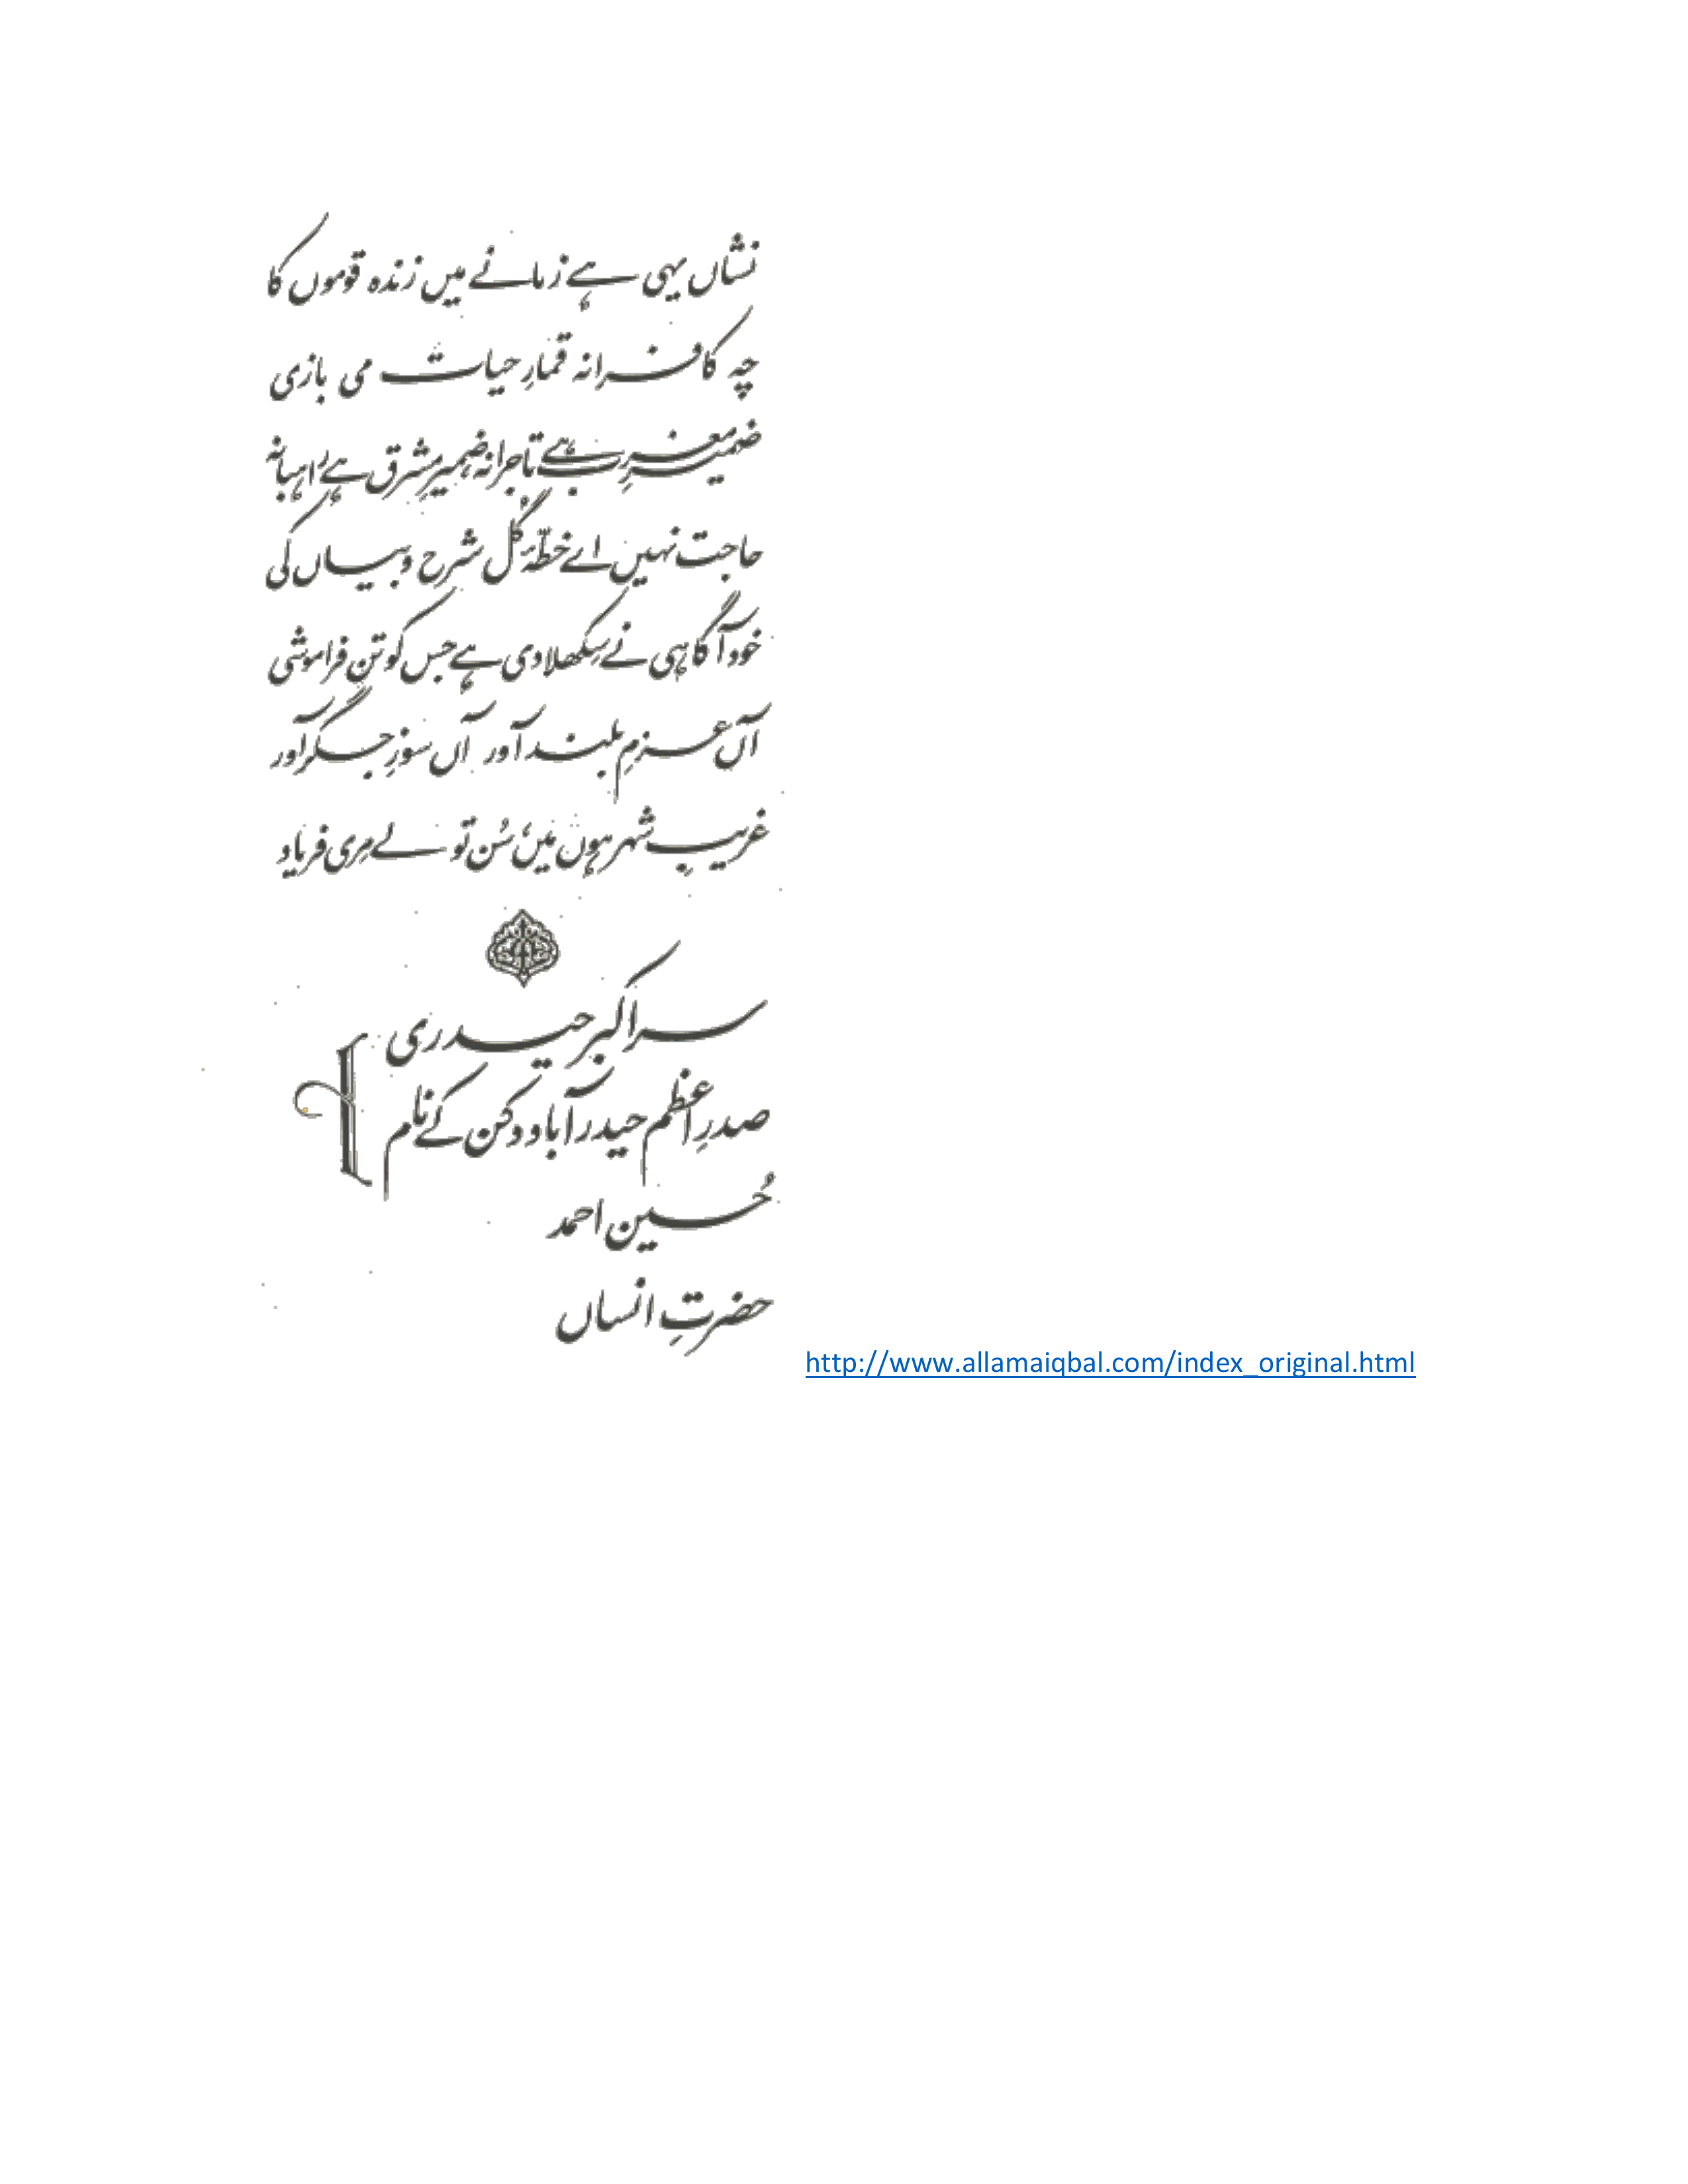 نشاں یہی ہے زمانے میں زندہ قوموں کا
چہ کافرانہ قمارِ حیات می بازی
ضمیرِ مغرب ہے تاجرانہ ضمیرِ مشرق ہے راہبانہ
حاجت نہیں اے خطّۂ گُل شرح و بیاں کی
خود آگاہی نے سِکھلا دی ہے جس کو تن فراموشی
آں عزمِ بلند آور آں سوزِ جگر آور
غریبِ شہر ہوں مَیں، سُن تو لے مِری فریاد
سر اکبر حیدری
صدرِ اعظم حیدر آباد دکن کے نام
حُسین احمد
حضرتِ انساں
http://www.allamaiqbal.com/index_original.html